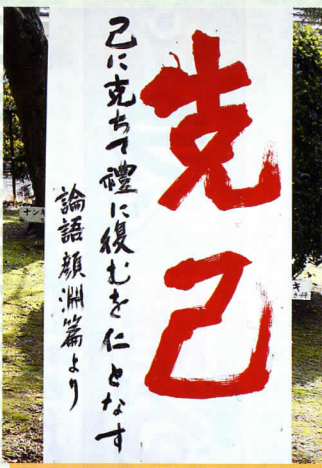 克己
己に克ちて禮に復むを仁となす
論語顔淵篇より
ナンキ
キ